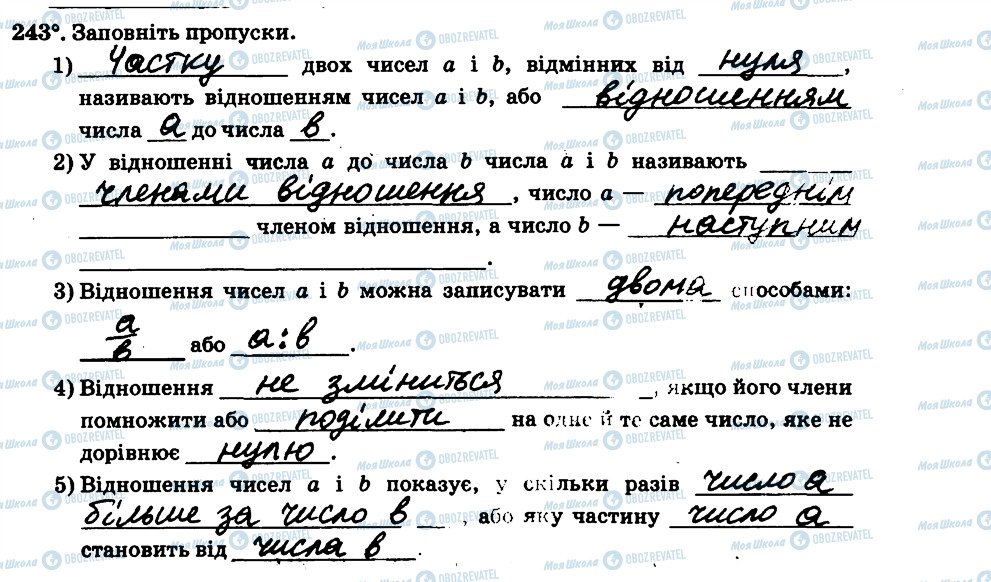 243°. Заповніть пропуски.
1) Частку двох чисел a і b, відмінних від нуля,
називають відношенням чисел a і b, або відношенням
числа а до числа в.
2) У відношенні числа a до числа b числа a і b називають
членами відношення, число a — попереднім
членом відношення, а число b — наступним
.
3) Відношення чисел a і b можна записувати двома способами:
а/в або а:в.
4) Відношення не зміниться, якщо його члени
помножити або поділити на одне й те саме число, яке не
дорівнює нулю.
5) Відношення чисел a і b показує, у скільки разів число а
більше за число в, або яку частину число а
становить від числа в.